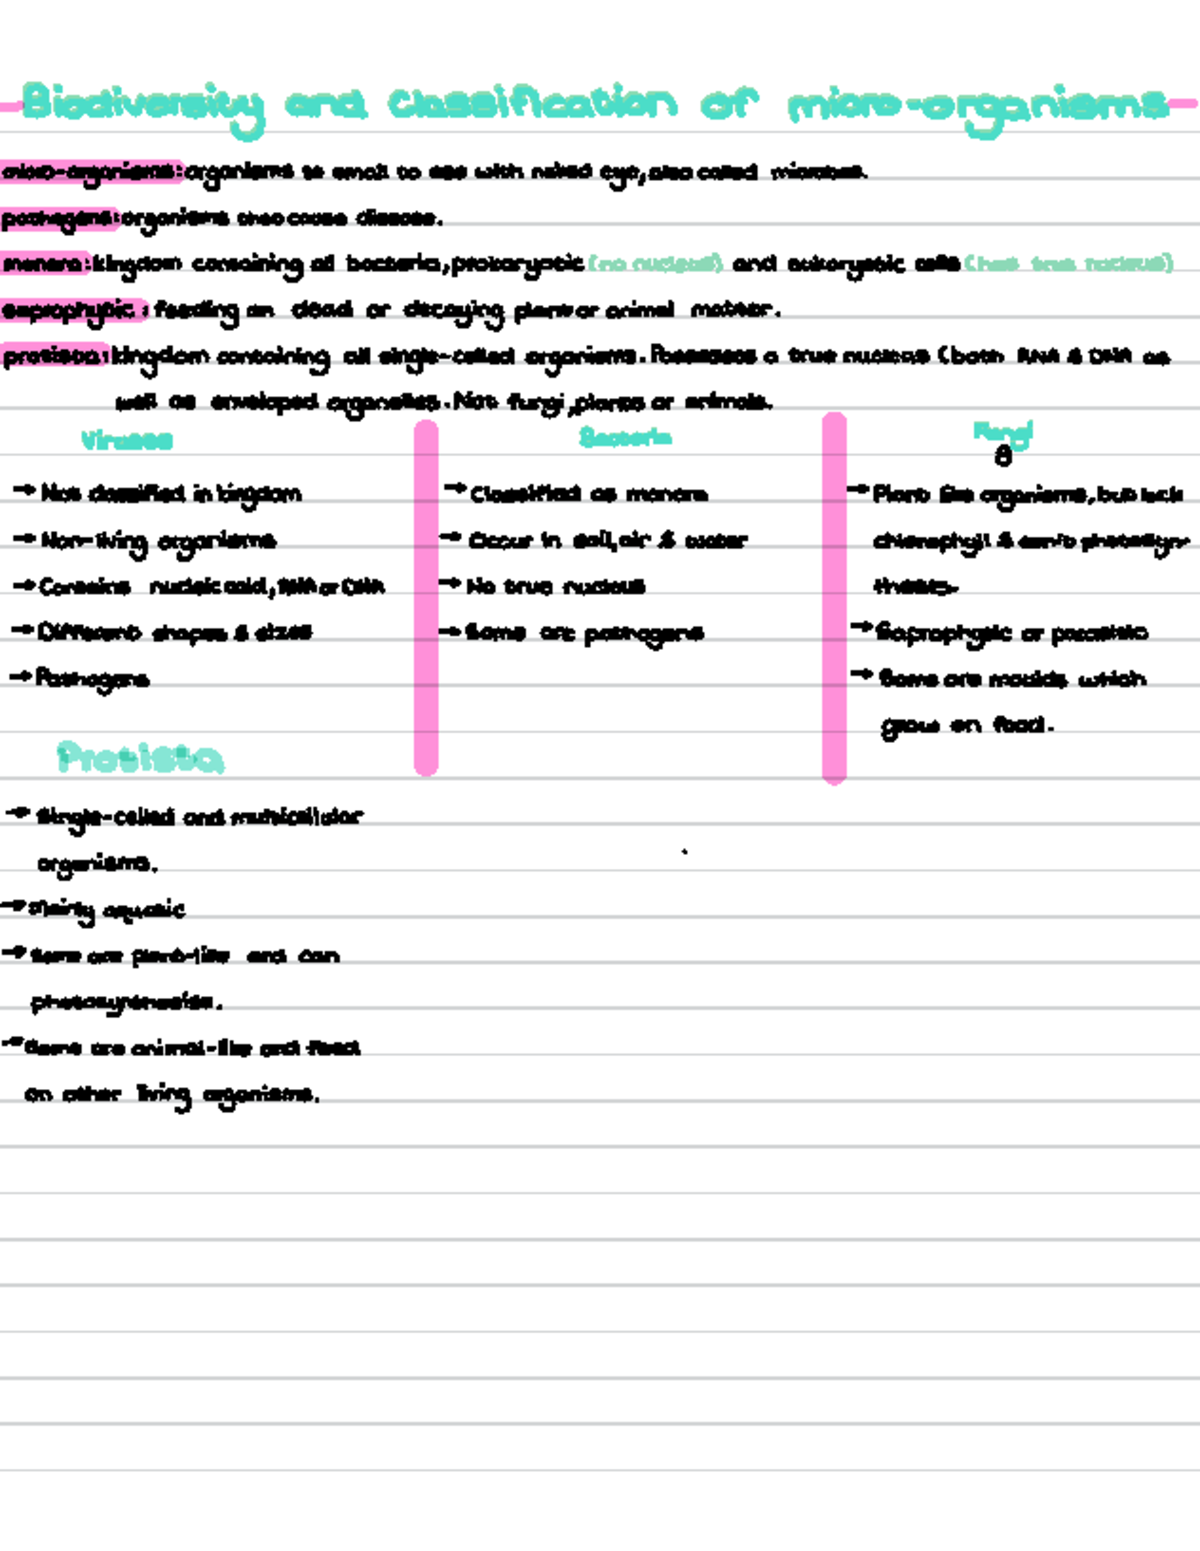 Biodiversity and classification of micro-organisms
micro-organisms: organisms to small to see with naked eye, also called microbes.
pathogens: organisms that cause disease.
monera: kingdom containing all bacteria, prokaryotic (no nucleus) and eukaryotic cells (has true nucleus)
saprophytic: feeding on dead or decaying plant or animal matter.
protista: kingdom containing all single-celled organisms. Possesses a true nucleus (both RNA & DNA as
well as enveloped organelles. Not fungi, plants or animals.
Viruses
→ Not classified in kingdom
→ Non-living organisms
→ Contains nucleic acid, RNA or DNA
→ Different shapes & sizes
→ Pathogens
Bacteria
→ Classified as monera
→ Occur in soil, air & water
→ No true nucleus
→ Some are pathogens
Fungi
8
→ Plant like organisms, but lack
chlorophyll & can't photosyn-
thesis.
→ Saprophytic or parasitic
→ Some are moulds which
grow on food.
Protista
→ Single-celled and multicellular
organisms.
→ Mainly aquatic
→ Some are plant-like and can
photosynthesise.
→ Some are animal-like and feed
on other living organisms.